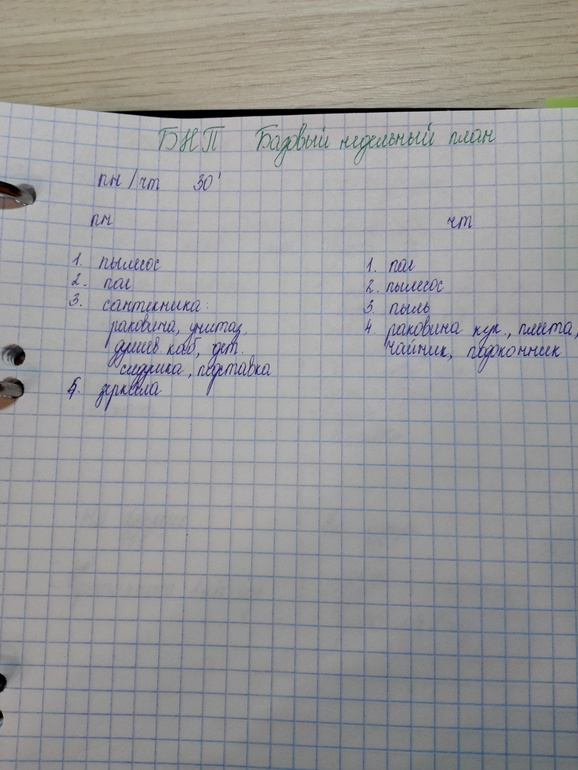 БНП Базовый недельный план
пн/чт 30'
пн
1. пылесос
2. пол
3. сантехника:
раковина, унитаз,
душев каб, дет.
сидушка, подставка
4. зеркала
чт
1. пол
2. пылесос
3. пыль
4. раковина кух., плита,
чайник, подоконник